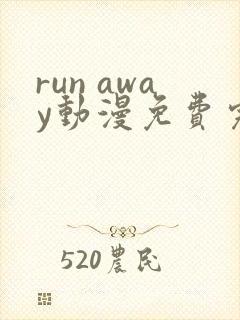 run awa
y動漫免費
520農民